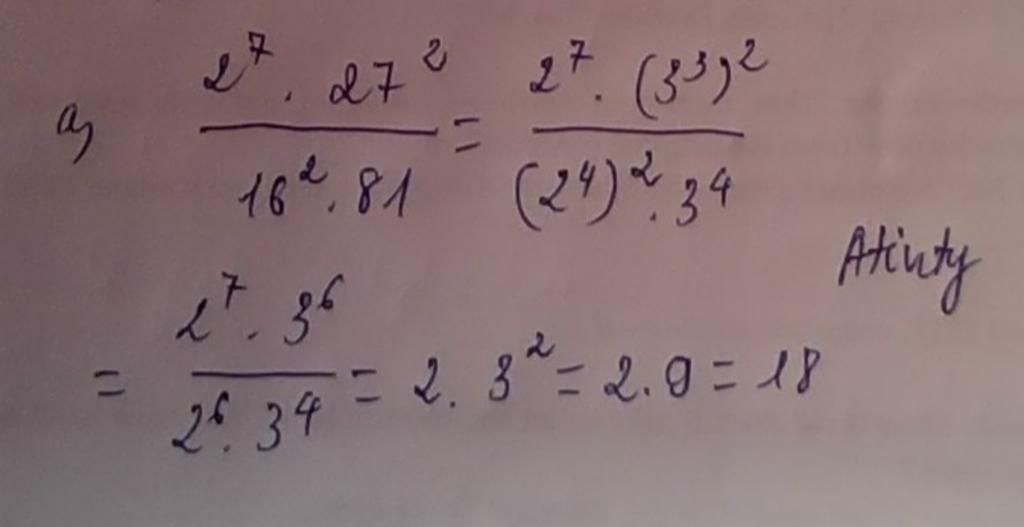 a) \frac{2^7 . 27^2}{16^2 . 81} = \frac{2^7 . (3^3)^2}{(2^4)^2 . 3^4}
Atinty
= \frac{2^7 . 3^6}{2^6 . 3^4} = 2 . 3^2 = 2 . 9 = 18